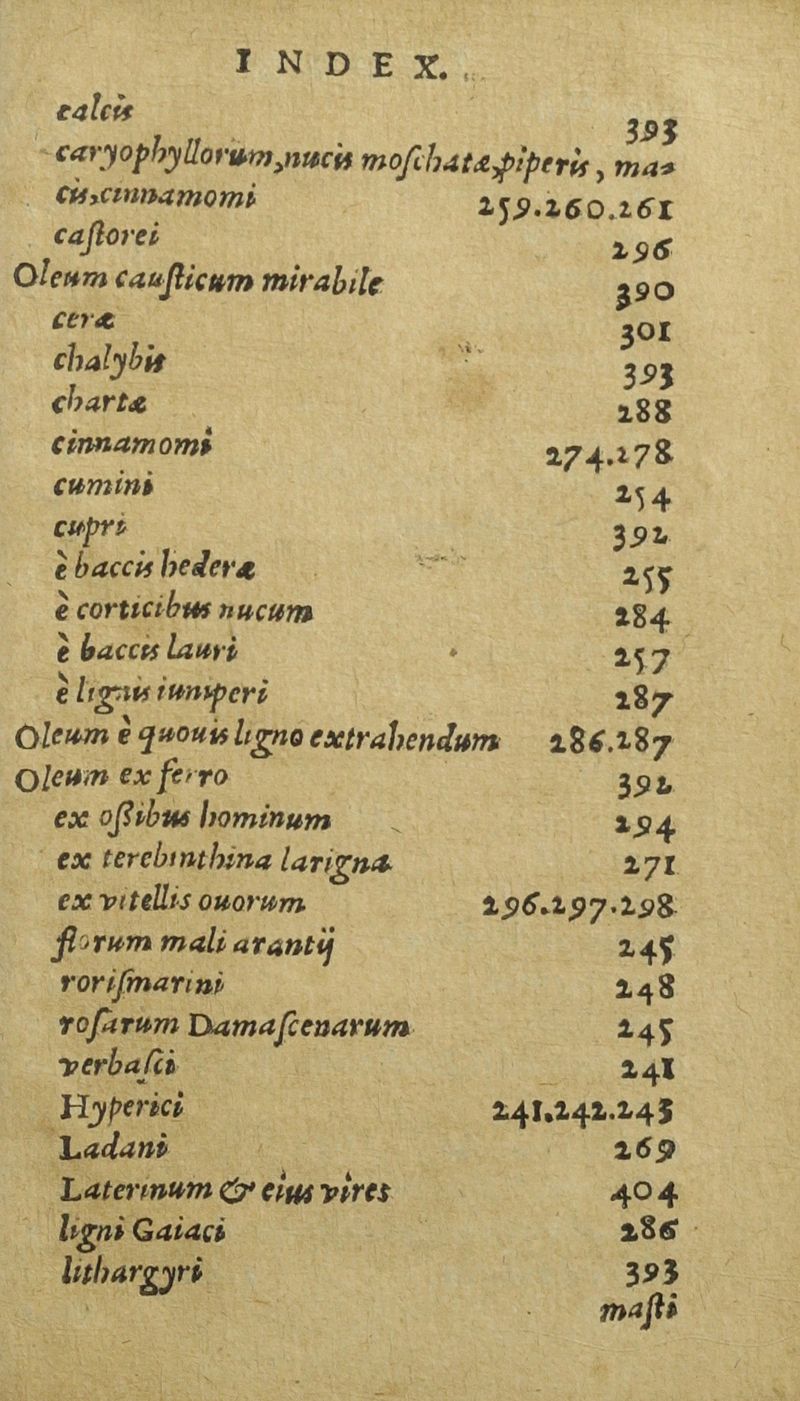 INDEX.
calcis 393
caryophyllorum, nucis moschatæ, piperis, ma-
cis, cinnamomi 259.260.261
castorei 296
Oleum causticum mirabile 390
ceræ 301
chalybis 393
chartæ 288
cinnamomi 274.278
cumini 254
cupri 392
è baccis hederæ 255
è corticibus nucum 284
è baccis lauri 257
è lignis iuniperi 287
Oleum è quouis ligno extrahendum 286.287
Oleum ex ferro 392
ex oſſibus hominum 294
ex terebinthina larigna 271
ex vitellis ouorum 296.297.298
florum mali arantij 245
roriſmarini 248
roſarum Damaſcenarum 245
verbaſci 241
Hyperici 241.242.243
Ladani 269
Laterinum & eius vires 404
ligni Gaiaci 286
lithargyri 393
maſti